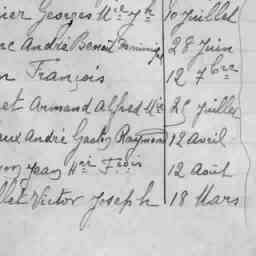 ier Georges Mie Jh 10 Juillet
re André Benoit Dominique 28 Juin
n François 12 7bre
et Armand Alfred Mie 25 Juillet
aux André Gaston Raymond 12 Avril
Jean Hri Fçois 12 Août
llet Victor Joseph 18 Mars